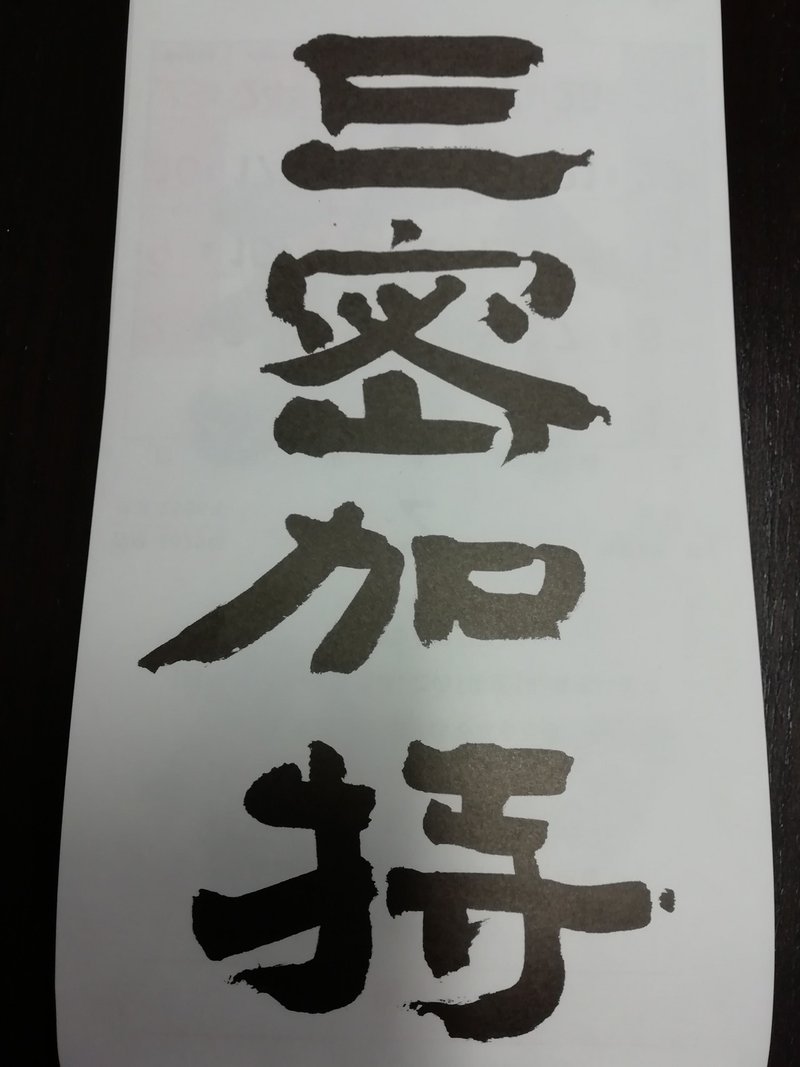 三密加持